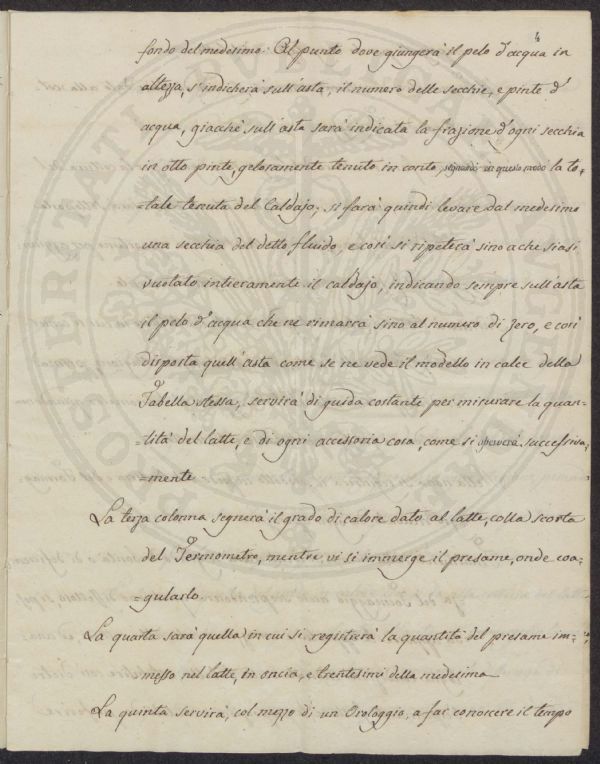 4
fondo del medesimo. Al punto dove giungerà il pelo d'acqua in
altezza, s'indicherà sull'asta, il numero delle secchie, e pinte d'
acqua, giacchè sull'asta sarà indicata la frazione d'ogni secchia
in otto pinte, gelosamente tenuto in conto, segnarà in questo modo la to=
=tale tenuta del Caldajo; si farà quindi levare dal medesimo
una secchia del detto fluido, e così si ripeterà sino a che siasi
vuotato intieramente il caldajo, indicando sempre sull'asta
il pelo d'acqua che ne rimarrà sino al numero di zero, e così
disposta quell'asta come se ne vede il modello in calce della
Tabella stessa, servirà di guida costante per misurare la quan=
=tità del latte, e di ogni accessoria cosa, come si osserverà successiva,
=mente
La terza colonna segnerà il grado di calore dato al latte, colla scorta
del Termometro, mentre vi si immerge il presame, onde coa=
=gularlo.
La quarta sarà quella in cui si registrerà la quantità del presame im=
messo nel latte, in oncia, e trentesimi della medesima
La quinta servirà, col mezzo di un Orologgio, a far conoscere il tempo